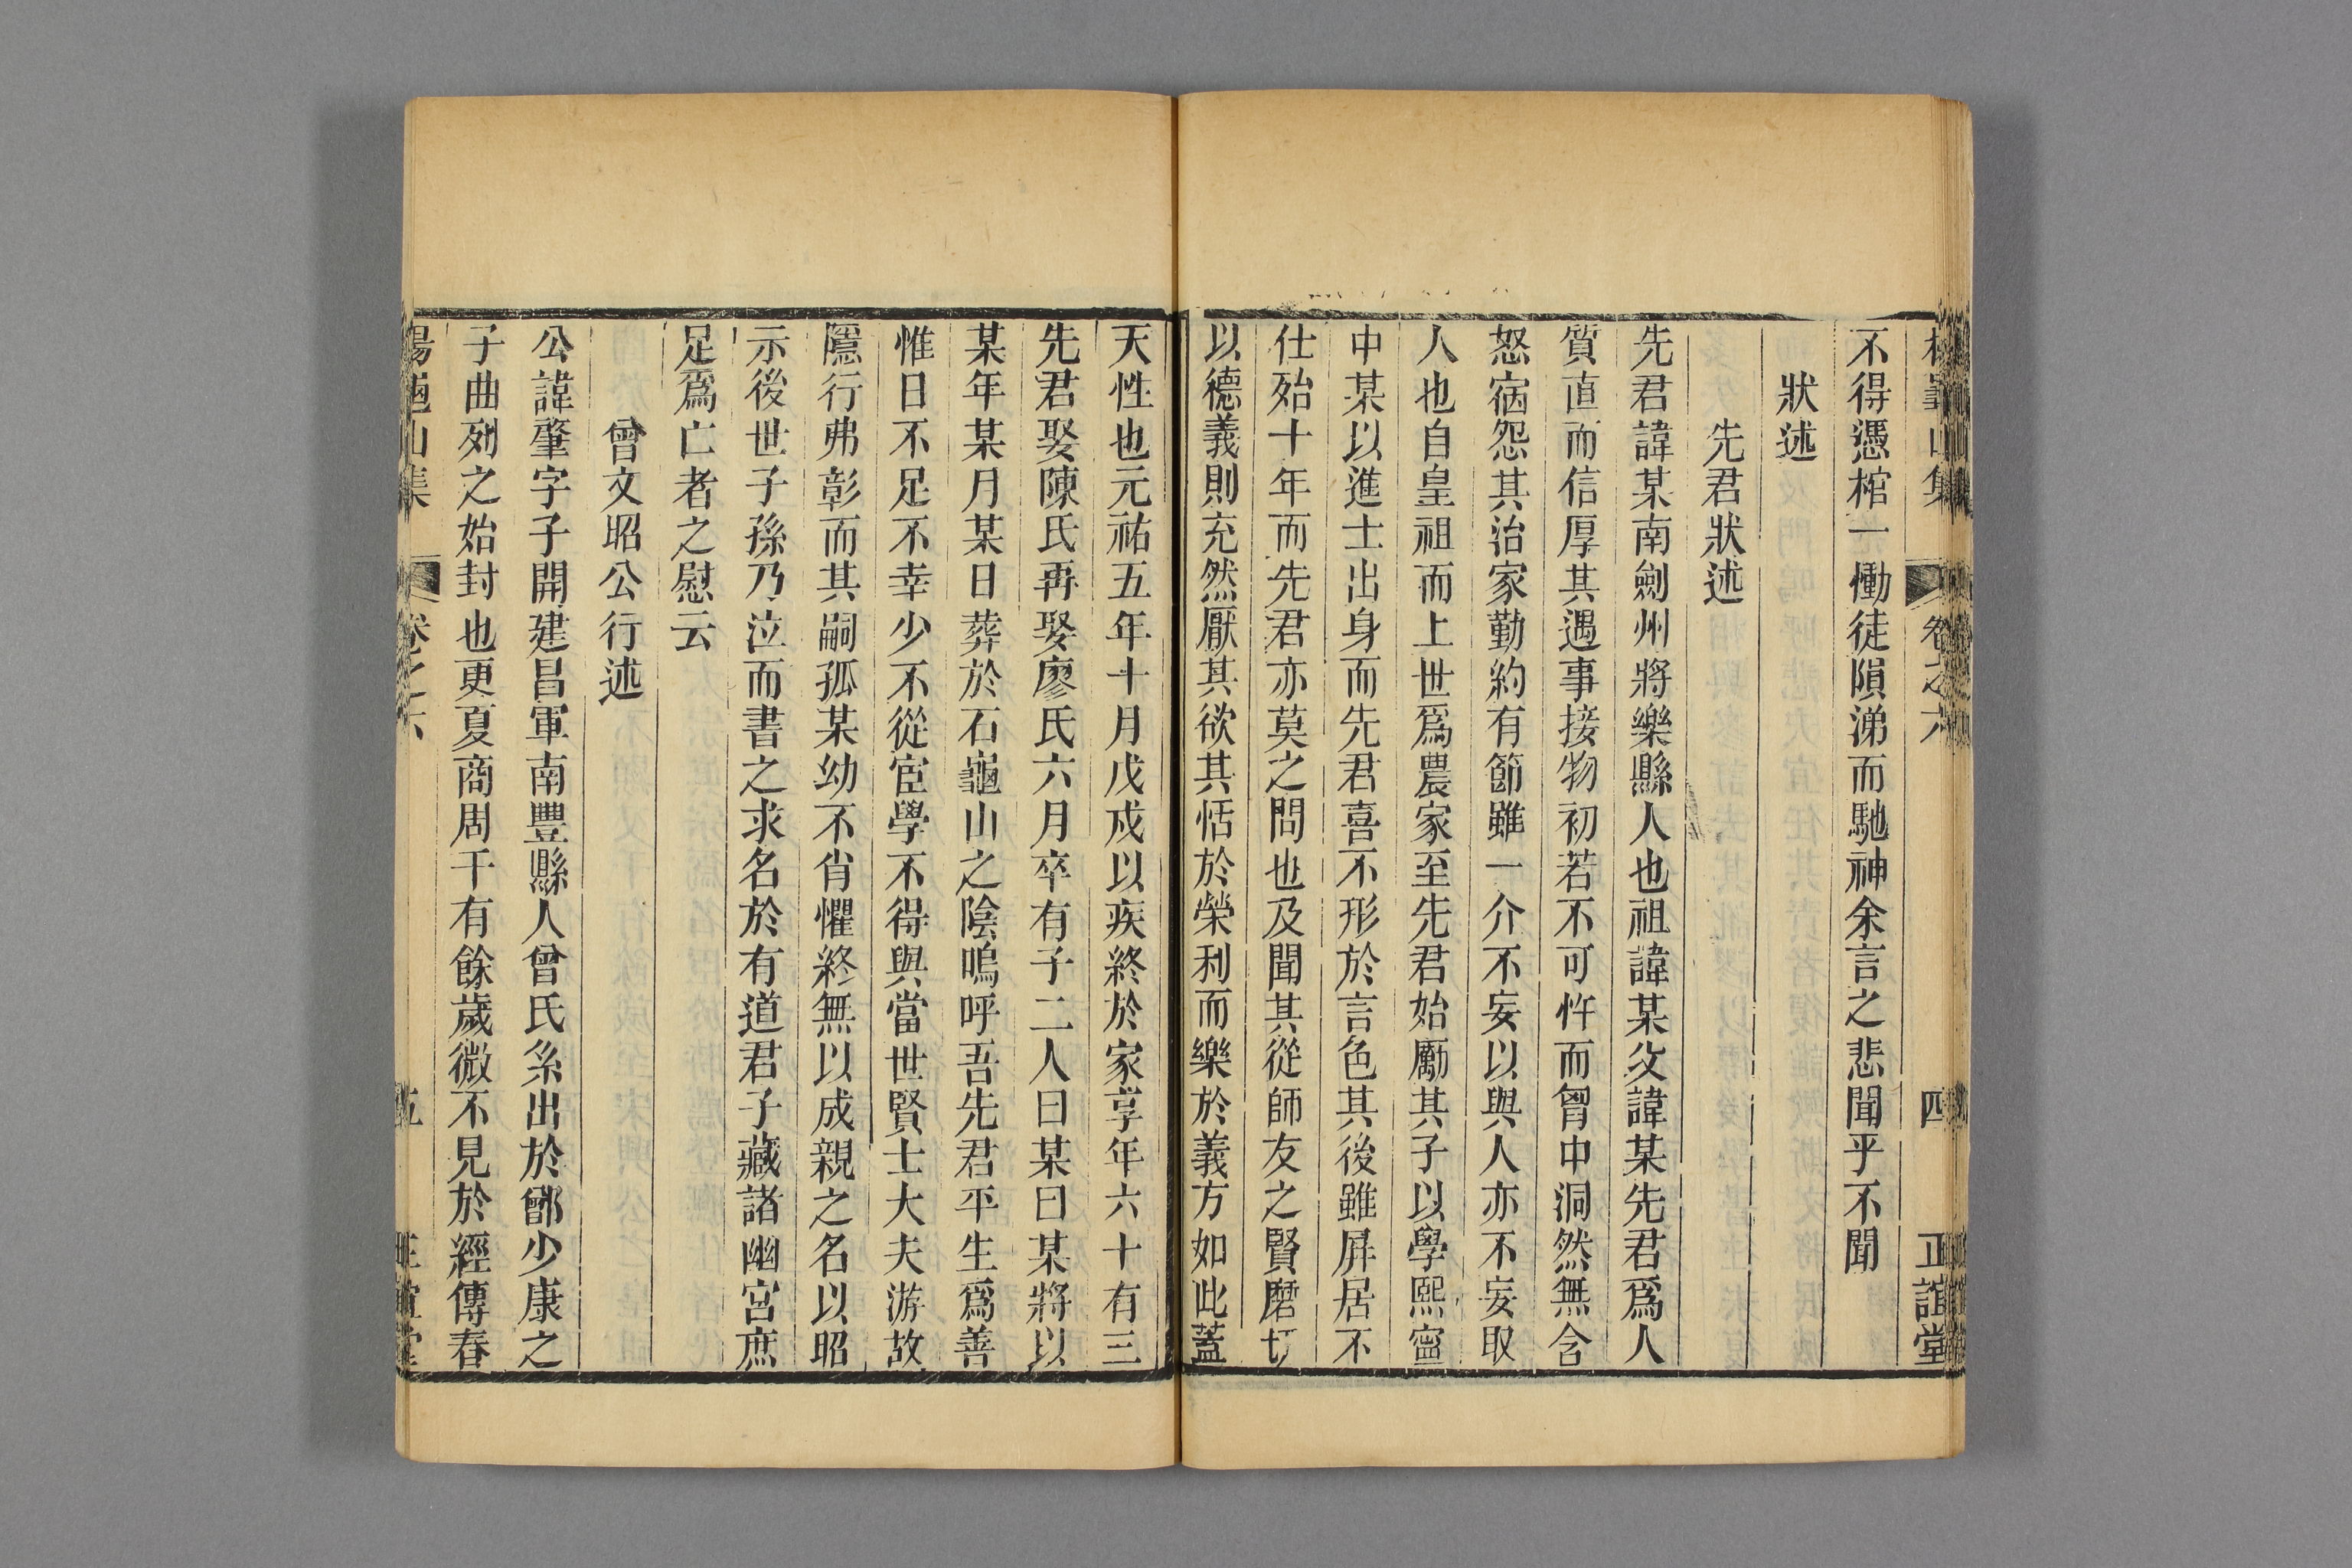 山集 卷之六 四 正誼堂
不得憑棺一慟徒隕涕而馳神余言之悲聞乎不聞
狀述
先君狀述
先君諱某南劍州將樂縣人也祖諱某父諱某先君爲人
質直而信厚其遇事接物初若不可忤而胷中洞然無含
怒宿怨其治家勤約有節雖一介不妄以與人亦不妄取
人也自皇祖而上世爲農家至先君始勵其子以學熙寧
中某以進士出身而先君喜不形於言色其後雖屏居不
仕殆十年而先君亦莫之問也及聞其從師友之賢磨切
以德義則充然厭其欲其恬於榮利而樂於義方如此蓋
天性也元祐五年十月戊戌以疾終於家享年六十有三
先君娶陳氏再娶廖氏六月卒有子二人曰某曰某將以
某年某月某日葬於石龜山之陰嗚呼吾先君平生爲善
惟日不足不幸少不從宦學不得與當世賢士大夫游故
隱行弗彰而其嗣孤某幼不肖懼終無以成親之名以昭
示後世子孫乃泣而書之求名於有道君子藏諸幽宮庶
足爲亡者之慰云
曾文昭公行述
公諱肇字子開建昌軍南豐縣人曾氏系出於鄫少康之
子曲列之始封也更夏商周千有餘歲微不見於經傳春
楊龜山集 卷之六 五